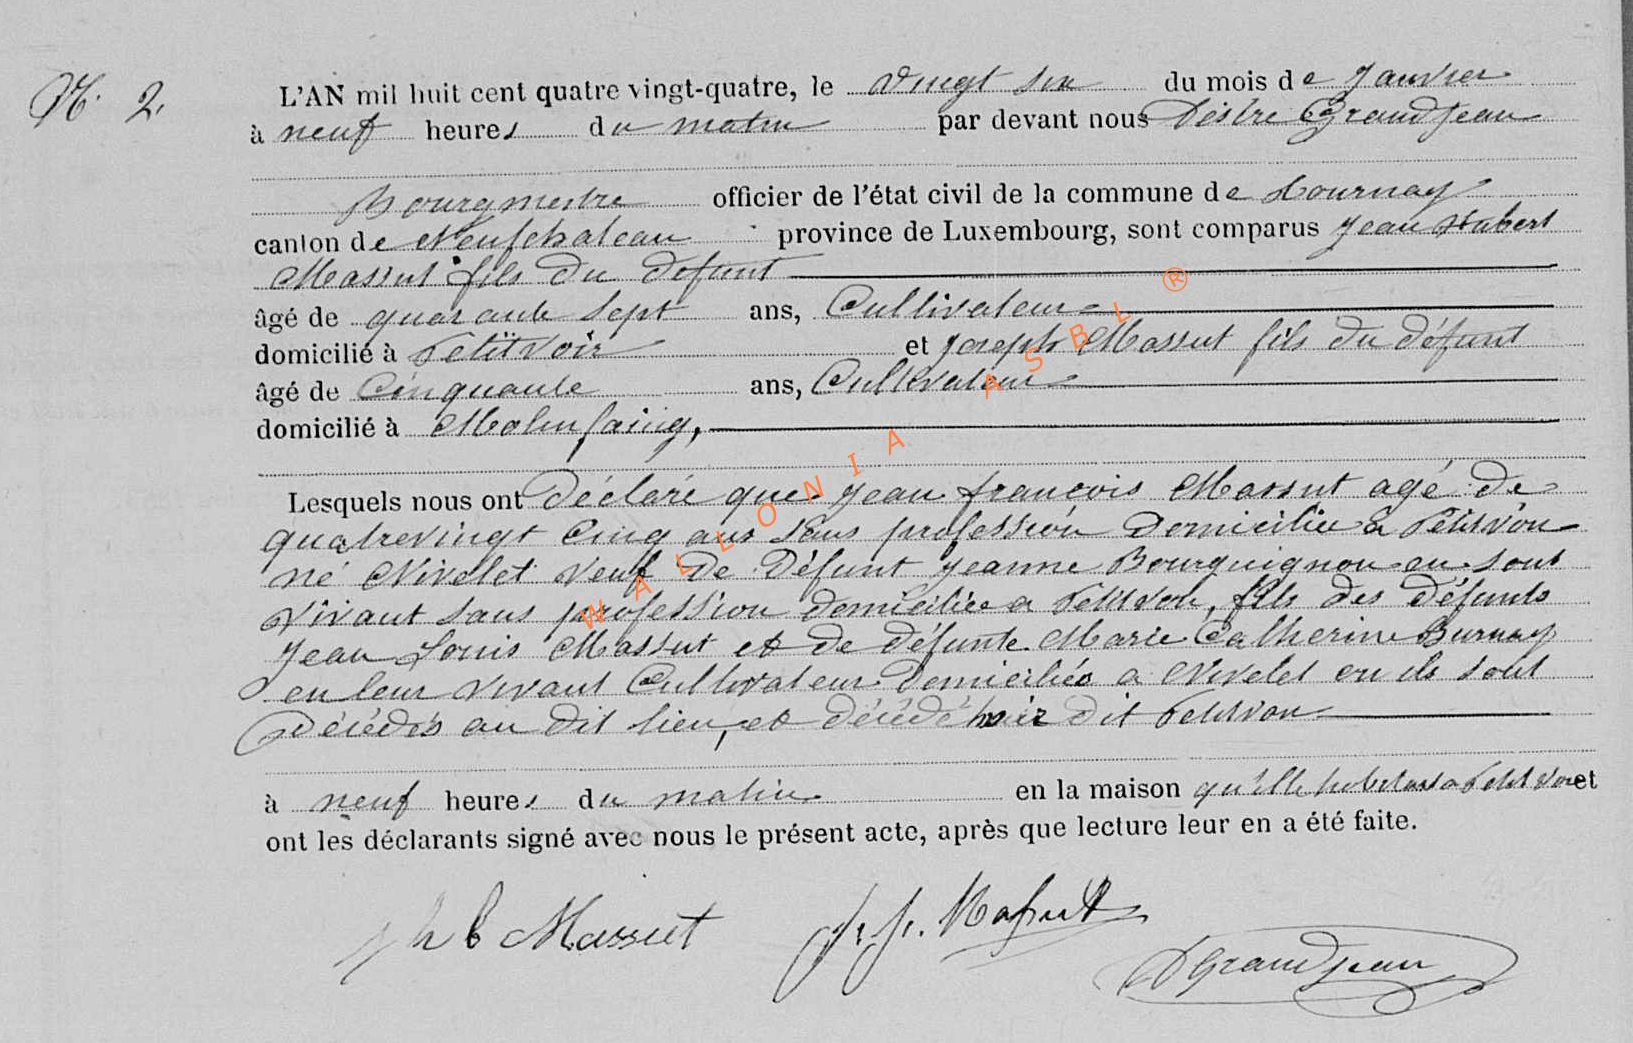 N. 2.
L'AN mil huit cent quatre vingt-quatre, le vingt six du mois de Janvier
à neuf heures du matin par devant nous Désiré Grandjean
Bourgmestre officier de l'état civil de la commune de Tournay
canton de Neufchateau province de Luxembourg, sont comparus Jean Hubert
Massut fils du defunt
âgé de quarante sept ans, Cultivateur
domicilié à Petitvoir et Joseph Massut fils du défunt
âgé de Cinquante ans, Cultivateur
domicilié à Molinfaing,
Lesquels nous ont déclaré que Jean françois Massut agé de
quatrevingt cinq ans sans profession domiciliée a Petitvoir
né Nivelet veuf de défunt Jeanne Bourguignon en sont
vivant sans profession domiciliée a Petitvoir, fils des défunts
Jean Louis Massut et de défunte Marie Catherine Burnay
en leur vivant Cultivateur domiciliés a Nivelet ou ils sont
décédés au dit lieu, et décédé hier dit Petitvoir
à neuf heures du matin en la maison qu'elle habitait a Petitvoir et
ont les déclarants signé avec nous le présent acte, après que lecture leur en a été faite.
J h b Massut J. J. Massut
DGrandjean
WALLONIA ASBL ®